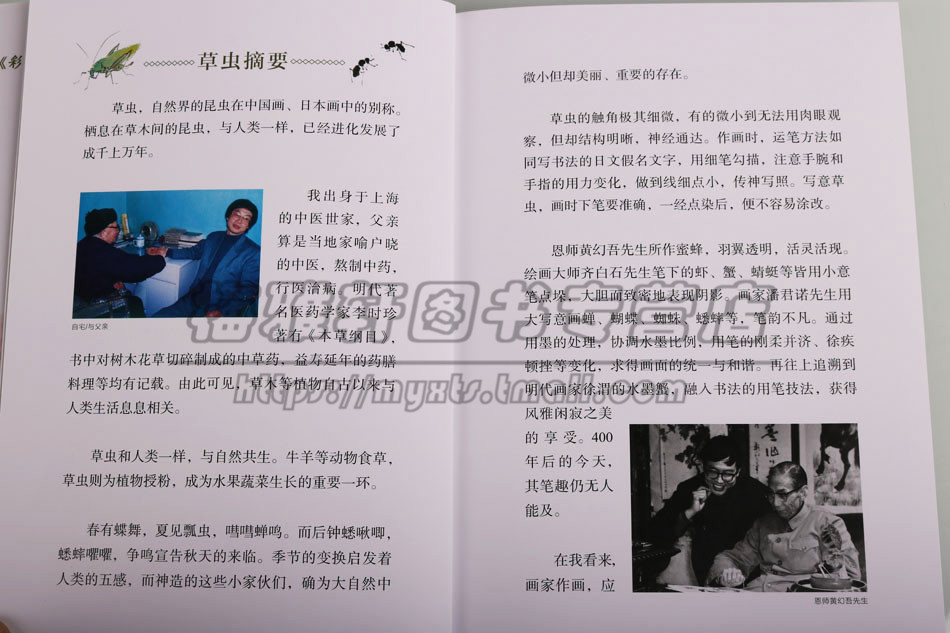 《彩
草虫摘要
草虫，自然界的昆虫在中国画、日本画中的别称。
栖息在草木间的昆虫，与人类一样，已经进化发展了
成千上万年。
我出身于上海
的中医世家，父亲
算是当地家喻户晓
的中医，熬制中药，
行医治病。明代著
名医药学家李时珍
著有《本草纲目》，
自宅/与父亲
书中对树木花草切碎制成的中草药，益寿延年的药膳
料理等均有记载。由此可见，草木等植物自古以来与
人类生活息息相关。
草虫和人类一样，与自然共生。牛羊等动物食草，
草虫则为植物授粉，成为水果蔬菜生长的重要一环。
春有蝶舞，夏见瓢虫，嘒嘒蝉鸣。而后钟蟋啾唧，
蟋蟀嚁嚁，争鸣宣告秋天的来临。季节的变换启发着
人类的五感，而神造的这些小家伙们，确为大自然中
微小但却美丽、重要的存在。
草虫的触角极其细微，有的微小到无法用肉眼观
察，但却结构明晰，神经通达。作画时，运笔方法如
同写书法的日文假名文字，用细笔勾描，注意手腕和
手指的用力变化，做到线细点小，传神写照。写意草
虫，画时下笔要准确，一经点染后，便不容易涂改。
恩师黄幻吾先生所作蜜蜂，羽翼透明，活灵活现。
绘画大师齐白石先生笔下的虾、蟹、蜻蜓等皆用小意
笔点垛，大胆而致密地表现阴影。画家潘君诺先生用
大写意画蝉、蝴蝶、蜘蛛、蟋蟀等，笔韵不凡。通过
用墨的处理，协调水墨比例，用笔的刚柔并济、徐疾
顿挫等变化，求得画面的统一与和谐。再往上追溯到
明代画家徐渭的水墨蟹，融入书法的用笔技法，获得
风雅闲寂之美
的享受。400
年后的今天，
其笔趣仍无人
能及。
在我看来，
画家作画，应
恩师黄幻吾先生
图书专营店
https://myxts.tmall.com